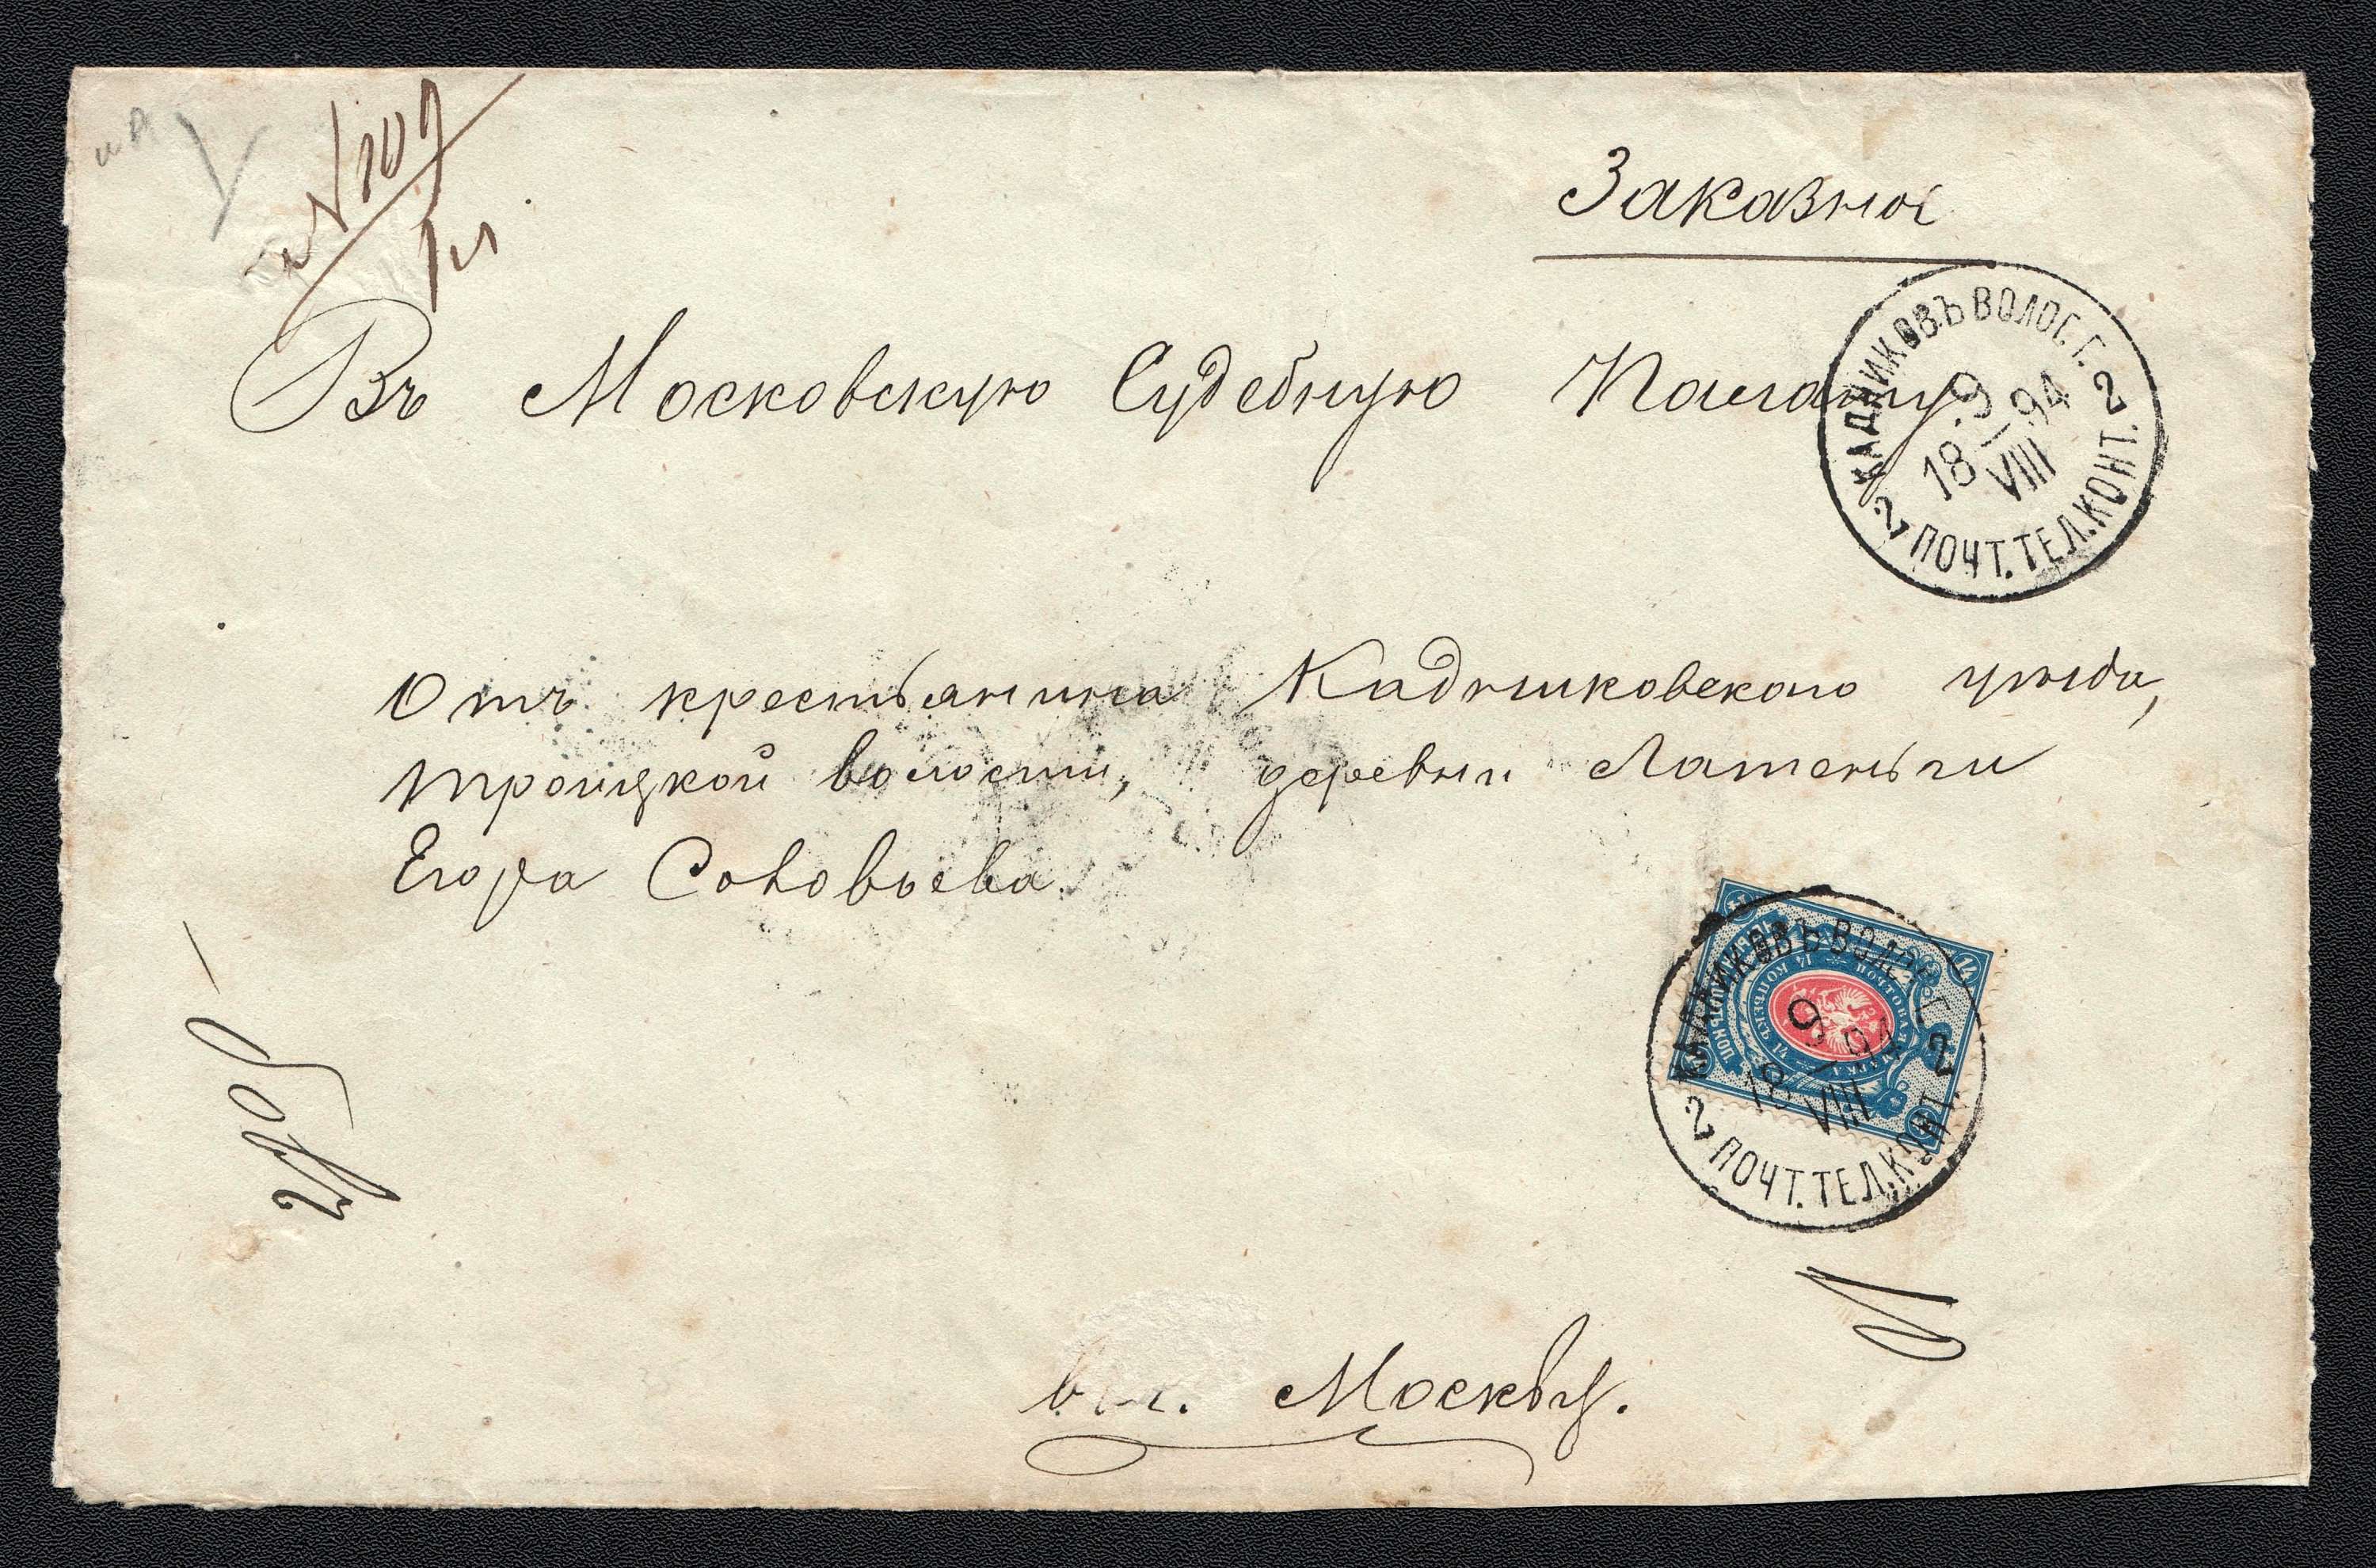 № 109
Заказное
Въ Московскую Судебную Палату
КАДНИКОВЪ ВОЛОГ. Г.
9
18 94
VIII
2 2
ПОЧТ. ТЕЛ. КОНТ.
Отъ крестьянина Кадниковскаго уѣзда,
Троицкой волости, деревни
Егора Соловьева.
14 14
ПОЧТОВАЯ МАРКА 14 КОПѢЕКЪ 14
КАДНИКОВЪ ВОЛОГ. Г.
9
18 94
VIII
2 2
ПОЧТ. ТЕЛ. КОНТ.
в г. Москву.